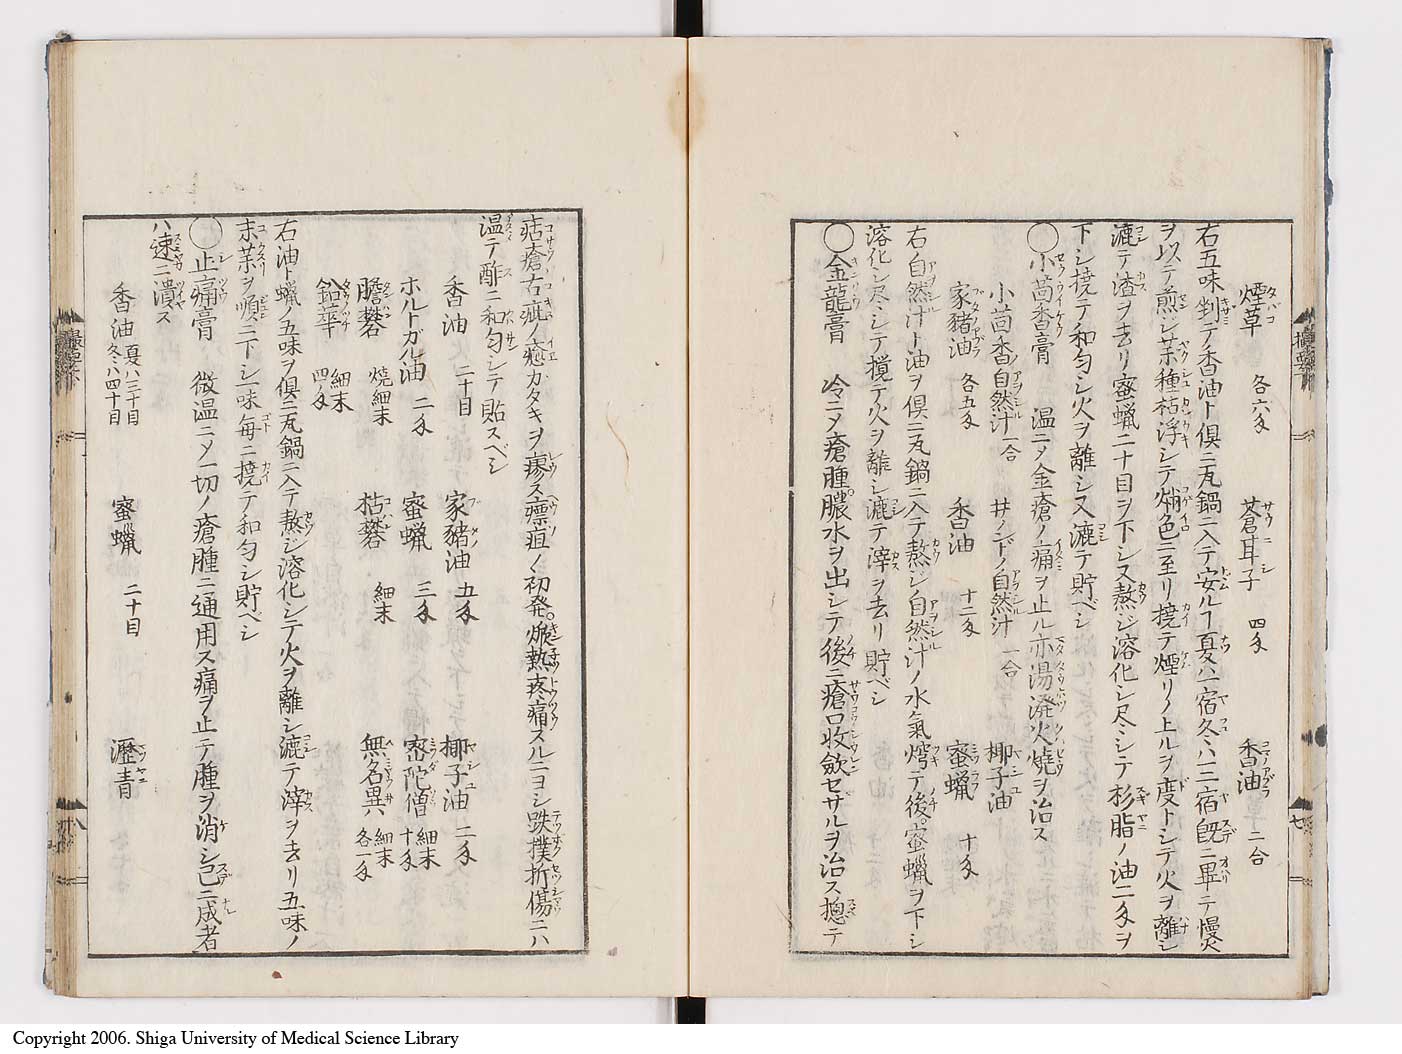 煙草 各六匁 蒼耳子 四匁 香油 二合
右五味剉テ香油ト俱ニ瓦鍋ニ入テ安ルヿ夏ハ一宿冬ハ三宿既ニ畢テ慢火
ヲ以テ煎シ茱種枯浮シテ焇色ニ至リ撓テ煙リノ上ルヲ度トシテ火ヲ離シ
漉テ渣ヲ去リ蜜蝋二十目ヲ下シ又熬ジ溶化シ尽シテ杉脂ノ油二匁ヲ
下シ撓テ和匀シ火ヲ離シ又漉テ貯ベシ
◯小茴香膏 温ニメ金瘡ノ痛ヲ止ル亦湯潑火燒ヲ治ス
小茴香自然汁 一合 井ノンドノ自然汁 一合 椰子油
家豬油 各五匁 香油 十二匁 蜜蝋 十匁
右自然汁ト油ヲ俱ニ瓦鍋ニ入テ熬ジ自然汁ノ水氣愕テ後蜜蝋ヲ下シ
溶化シ尽シテ撹テ火ヲ離シ漉テ滓ヲ去リ貯ベシ
◯金龍膏 冷ニメ瘡腫膿水ヲ出シテ後ニ瘡口收斂セサルヲ治ス摠テ
痁瘡右疵ノ癒カタキヲ瘳ス瘭疽ノ初発焮熱疼痛スルニヨシ跌撲折傷ニハ
温テ酢ニ和匀シテ貼スベシ
香油 二十目 家豬油 五匁 椰子油 二匁
ホルトガル油 二匁 蜜蝋 三匁 密陀僧 細末 十匁
膽礬 燒細末 枯礬 細末 無名異 細末 各一匁
鉛華 細末 四匁
右油ト蝋ノ五味ヲ俱ニ瓦鍋ニ入テ熬ジ溶化シテ火ヲ離シ漉テ滓ヲ去リ五味ノ
末茱ヲ順ニ下シ一味每ニ撓テ和匀シ貯ベシ
◯止痛膏 微温ニメ一切ノ瘡腫ニ通用ス痛ヲ止テ腫ヲ消シ已ニ成者
ハ速ニ潰ス
香油 夏ハ三十目 冬ハ四十目 蜜蝋 二十目 瀝青
Copyright 2006. Shiga University of Medical Science Library